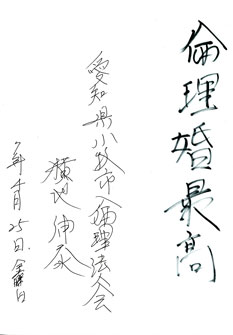 倫理婚最高
愛知県小牧市倫理法人会
横地伸泰
7年4月25日金曜日